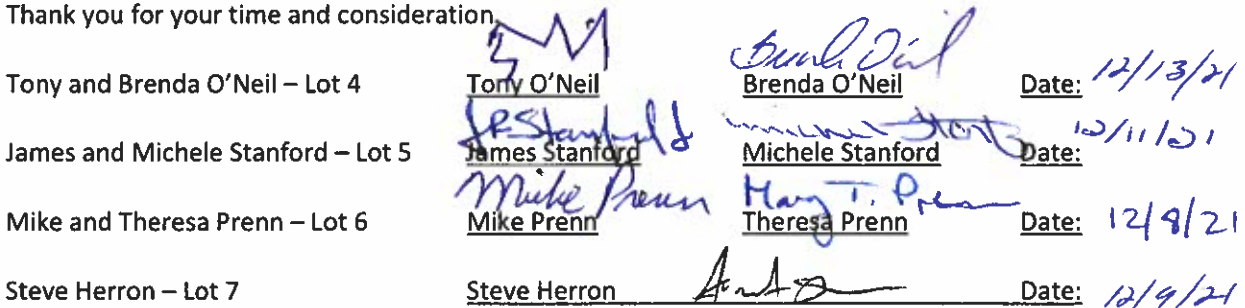 Thank you for your time and consideration.
Tony and Brenda O'Neil – Lot 4 Tony O'Neil Brenda O'Neil Date: 12/13/21
JRStanford
James and Michele Stanford – Lot 5 James Stanford Michele Stanford Date: 12/11/21
Mike Prenn Mary T. Prenn
Mike and Theresa Prenn – Lot 6 Mike Prenn Theresa Prenn Date: 12/8/21
Steve Herron – Lot 7 Steve Herron Date: 12/9/21